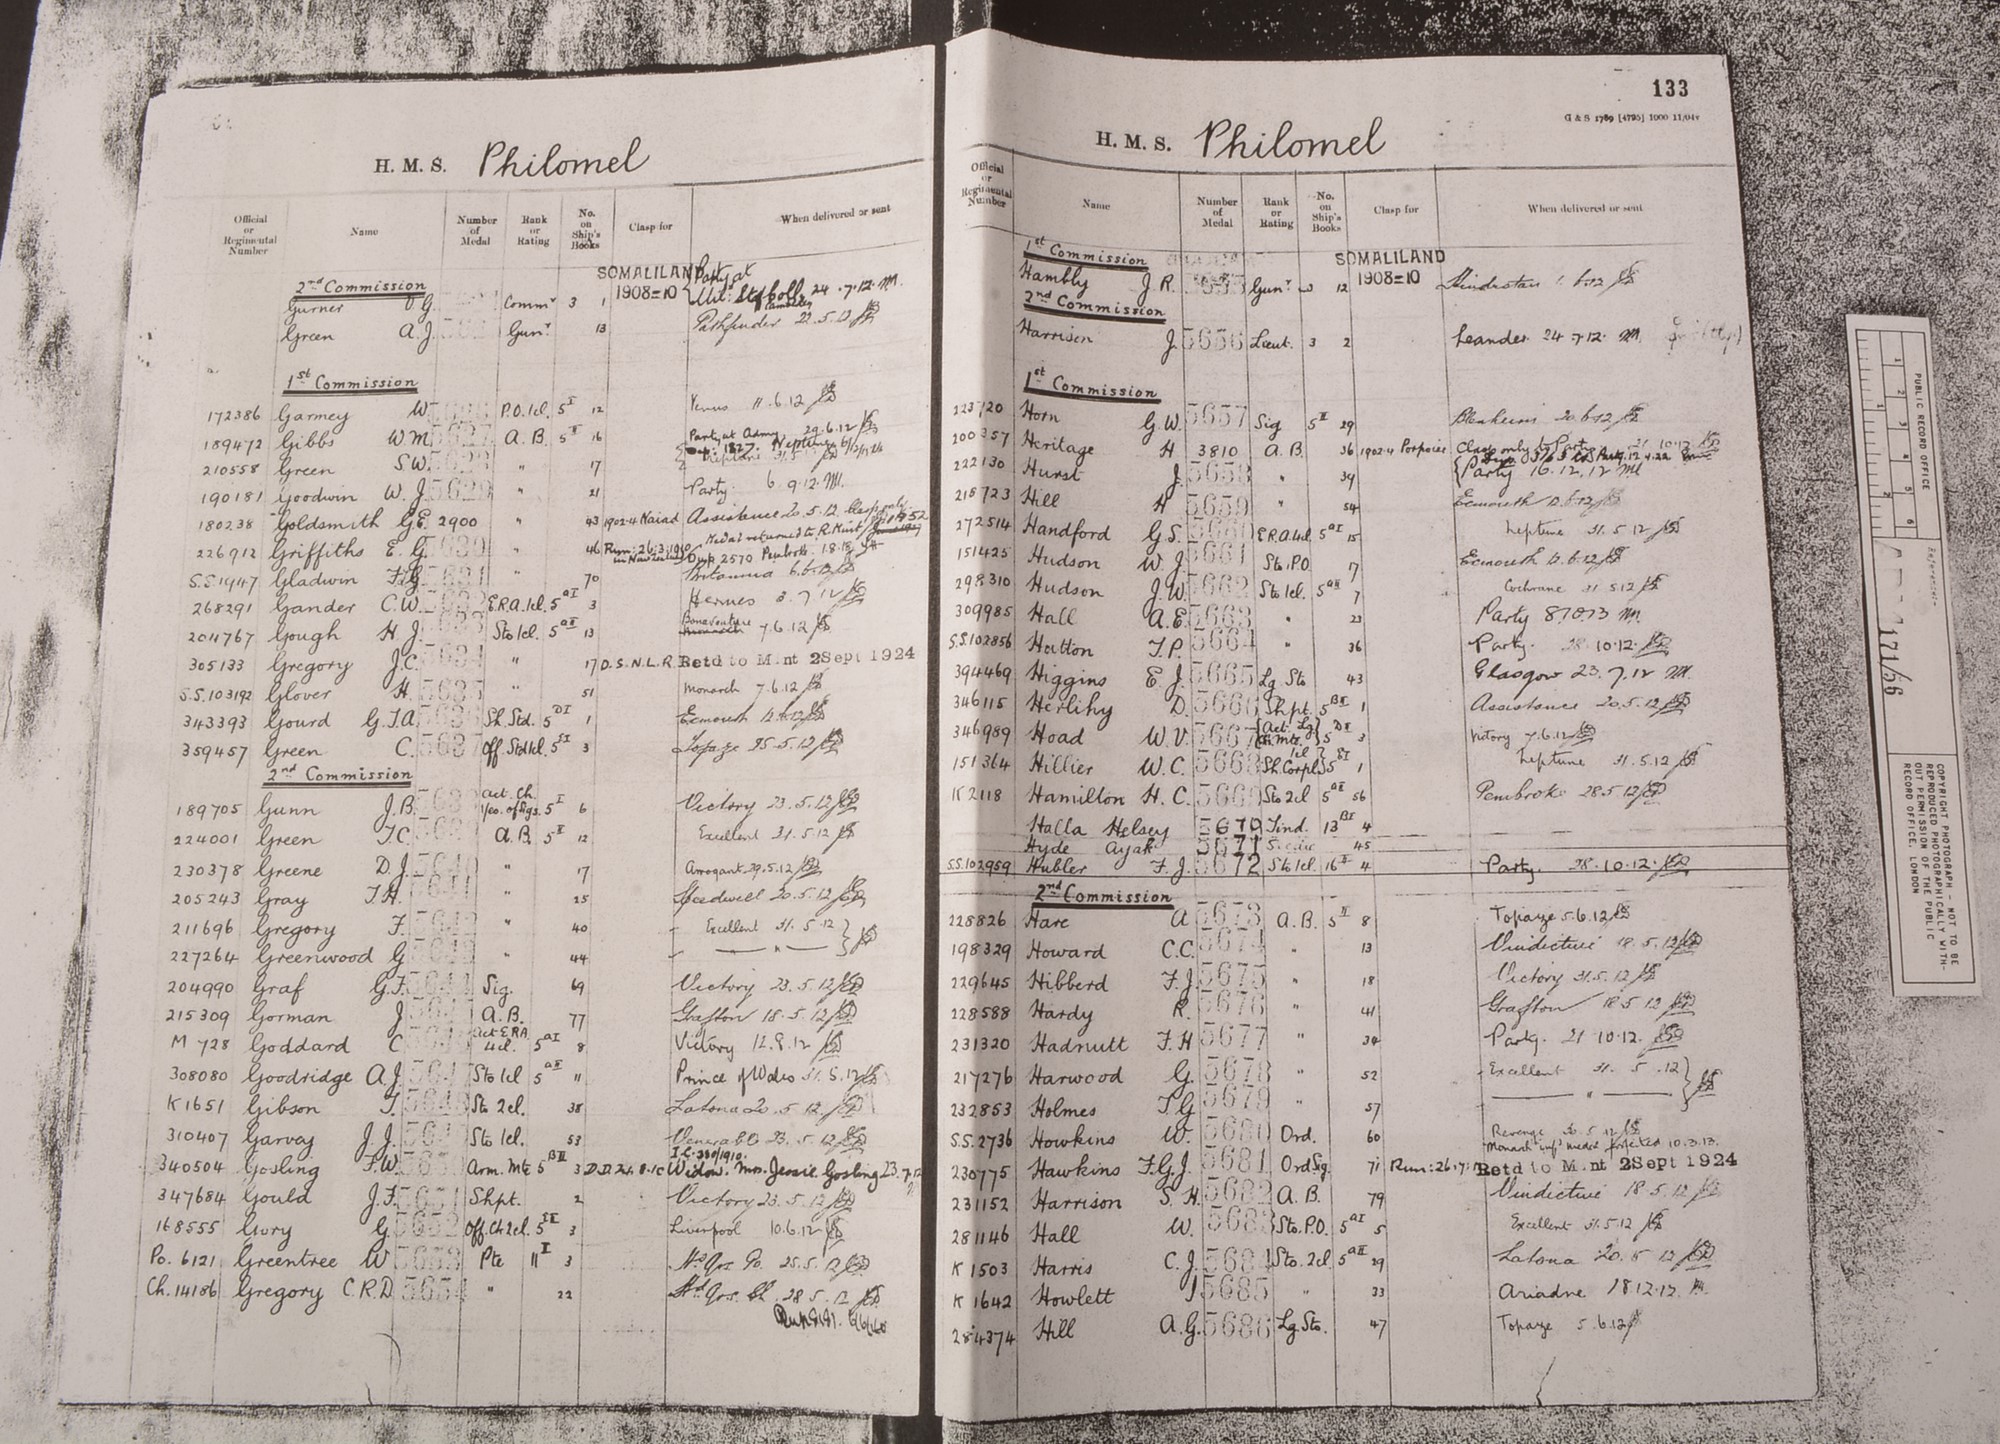 H. M. S. Philomel
Official or Regimental Number
Name
Number of Medal
Rank or Rating
No. on Ship's Books
Clasp for
When delivered or sent
2nd Commission
SOMALILAND 1908=10
Gurner G. Commr 3 1 24.7.12. M.
Green A.J. Gunr 13 Pathfinder 22.5.12
1st Commission
172386 Garmey W. P.O.1cl. 5I 12 Venus 11.6.12
189472 Gibbs W.M. 5627 A.B. 5II 16 Party at Army 29.6.12
210558 Green S.W. 5628 " 17 Neptune 31.5.12
190181 Goodwin W.J. 5629 " 21 Party. 6.9.12. M.
180238 Goldsmith G.E. 2900 " 43 1902-4 Naiad Assistance 20.5.12. Clasp only
226912 Griffiths E.G. 5630 " 46 Run: 26:3:1910 in New Zealand Medal returned to R. Mint
Dup 2570 Pembroke 1.8.18
S.S.1947 Gladwin F.G. 5631 " 70 Britannia 6.6.12
268291 Gander C.W. 5632 E.R.A.1cl. 5aI 3 Hermes 3.7.12
204767 Gough H.J. 5633 Sto 1cl. 5aII 13 Bonaventure 7.6.12
305133 Gregory J.C. 5634 " 17 D.S.N.L.R. Retd to Mint 2 Sept 1924
S.S.103192 Glover H. 5635 " 51 Monarch 7.6.12
343393 Gourd G.T.A. 5636 Sh. Std. 5DI 1 Exmouth 12.6.12
359457 Green C. 5637 Off. Std 1cl. 5EI 3 Topaze 25.5.12
2nd Commission
189705 Gunn J.B. Act. Ch. Yeo. of Sigs. 5I 6 Victory 23.5.12
224001 Green T.C. A.B. 5I 12 Excellent 31.5.12
230378 Greene D.J. 5640 " 17 Arrogant 29.5.12
205243 Gray T.H. 5641 " 25 Speedwell 20.5.12
211696 Gregory F. 5642 " 40 Excellent 31.5.12
227264 Greenwood G. 5643 " 44 — " —
204990 Graf G.F. 5644 Sig. 69 Victory 23.5.12
215309 Gorman J. A.B. 77 Grafton 18.5.12
M 728 Goddard C. Act E.R.A. 4cl. 5aI 8 Victory 12.9.12
308080 Goodridge A.J. 5647 Sto 1cl 5aII 11 Prince of Wales 31.5.12
K 1651 Gibson T. 5648 Sto 2cl. 38 Latona 20.5.12
310407 Garvey J.J. Sto 1cl. 53 Venerable 23.5.12
340504 Gosling F.W. Arm. Mte 5BII 3 D.D. 24.8.10 Widow. Mrs. Jessie Gosling 23.7.12
347684 Gould J.F. 5651 Shpt. 2 Victory 23.5.12
168555 Gory G. 5652 Off. Ch 2cl. 5EI 3 Liverpool 10.6.12
Po. 6121 Greentree W 5653 Pte 11I 3 Hd Qrs. Po. 25.5.12
Ch. 14186 Gregory C.R.D. 5654 " 22 Hd Qrs. Ch. 28.5.12
133
G & S 1789 [4795] 1000 11/04v
H. M. S. Philomel
Official or Regimental Number
Name
Number of Medal
Rank or Rating
No. on Ship's Books
Clasp for
When delivered or sent
1st Commission
SOMALILAND 1908=10
Hambly J.R. Gunr 3 12 Hindustan 1.6.12
2nd Commission
Harrison J. 5656 Lieut. 3 2 Leander. 24.7.12. M.
1st Commission
223720 Horn G.W. 5657 Sig 5II 29 Blenheim 20.6.12
200357 Heritage H 3810 A.B. 36 1902-4 Porpoise Clasp only to Party 21.10.12
222130 Hurst J. 5658 " 39 Party 16.12.12 M.
215723 Hill H 5659 " 54 Exmouth 12.6.12
272514 Handford G.S. 5660 E.R.A.4cl. 5aI 15 Neptune 31.5.12
151425 Hudson W.J. 5661 Sto. P.O. 17 Exmouth 12.6.12
298310 Hudson J.W. 5662 Sto 1cl. 5aII 7 Cochrane 31.5.12
309985 Hall A.E. 5663 " 23 Party 8.10.13 M.
S.S.102856 Hutton T.P. 5664 " 36 Party. 28.10.12.
394469 Higgins E.J. 5665 Lg Sto 43 Glasgow 23.7.12 M.
346115 Herlihy D. 5666 Shpt. 5BI 1 Assistance 20.5.12
346989 Hoad W.V. 5667 Act. Lg 5DI 3 Victory 7.6.12
151364 Hillier W.C. 5668 Sh. Corpl. 1cl 5EI 1 Neptune 31.5.12
K 2118 Hamilton H.C. 5669 Sto 2cl 5aII 56 Pembroke 28.5.12
Halla Helsey 5670 Tind. 13BI 4
Hyde Ayah 5671 45
S.S.102959 Hubler F.J. 5672 Sto 1cl. 16I 4 Party. 28.10.12.
2nd Commission
228826 Hare A 5673 A.B. 5II 8 Topaze 5.6.12
198329 Howard C.C. 5674 " 13 Vindictive 18.5.12
229645 Hibberd F.J. 5675 " 18 Victory 31.5.12
228588 Hardy R. 5676 " 41 Grafton 18.5.12
231320 Hadnutt F.H 5677 " 34 Party. 21.10.12.
217276 Harwood G. 5678 " 52 Excellent 31.5.12
232853 Holmes T.G 5679 " 57 — " —
S.S.2736 Howkins W. 5680 Ord. 60 Revenge 30.5.12
230775 Hawkins F.G.J. 5681 Ord Sig. 71 Run: 26.7.11 Retd to Mint 2 Sept 1924
231152 Harrison S.H. 5682 A.B. 79 Vindictive 18.5.12
281146 Hall W. 5683 Sto. P.O. 5aI 5 Excellent 31.5.12
K 1503 Harris C.J. 5684 Sto. 2cl 5aII 29 Latona 20.5.12
K 1642 Howlett J 5685 " 33 Ariadne 18.12.12. M.
284374 Hill A.G. 5686 Lg Sto. 47 Topaze 5.6.12
PUBLIC RECORD OFFICE
Reference:-
171/56
COPYRIGHT PHOTOGRAPH - NOT TO BE REPRODUCED PHOTOGRAPHICALLY WITHOUT PERMISSION OF THE PUBLIC RECORD OFFICE, LONDON